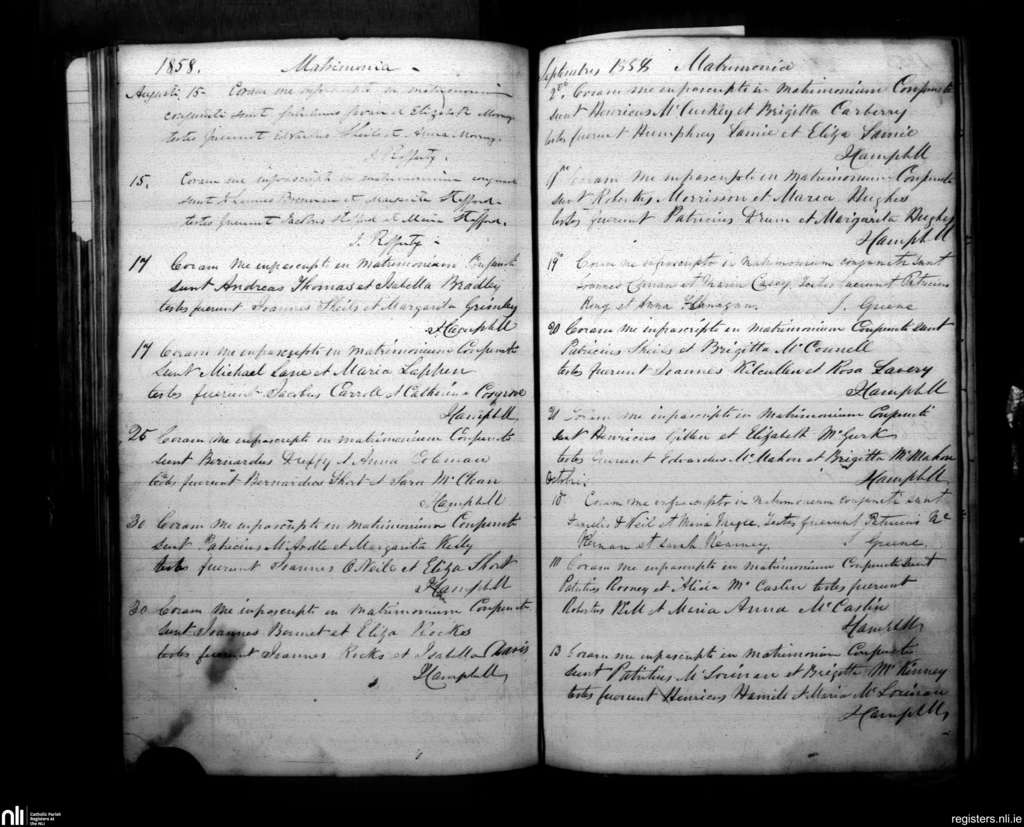 1858. Matrimonia -
Augusti 15- Coram me infrascripto in matrimonium
conjuncti sunt et Elizabeth
testes fuerunt et Anna
J. Rafferty.
15. Coram me infrascripto in matrimonium
sunt et Margarita Stafford
testes fuerunt Jacobus Stafford et Maria Stafford.
J. Rafferty -
17 Coram me infrascripto in matrimonium Conjuncti
sunt Andreas Thomas et Isabella Bradley
testes fuerunt Joannes Sheils et Margarita Grimley
J Campbell
17 Coram me infrascripto in matrimonium Conjuncti
Sunt Michael Lane et Maria Lappen
testes fuerunt Jacobus Carroll et Catharina Cosgrove
J Campbell
25 Coram me infrascripto in matrimonium Conjuncti
sunt Bernardus et Anna Coleman
testes fuerunt Bernardus Short et Sara McClean
J Campbell
30 Coram me infrascripto in matrimonium Conjuncti
sunt Patricius McArdle et Margarita Kelly
testes fuerunt Joannes O'Neile et Eliza Short
J Campbell
30 Coram me infrascripto in matrimonium Conjuncti
sunt Joannes Bennet et Eliza Rocks
testes fuerunt Joannes Rocks et Isabella Davis
J Campbell
Septembris 1858 Matrimonia
2 Coram me infrascripto in Matrimonium Conjuncti
sunt Henricus McCuskey et Brigitta Carberry
testes fuerunt Humphrey Lamie et Eliza Lamie
J Campbell
Coram me infrascripto in Matrimonium Conjuncti
sunt Robertus Morrisson et Maria Hughes
testes fuerunt Patricius Drum et Margarita Hughes
J Campbell
19 Coram me infrascripto in matrimonium conjuncti sunt
Joannes et Casey. Testes fuerunt Patricius
King et Anna Flanagan. J. Greene
20 Coram me infrascripto in matrimonium Conjuncti sunt
Patricius Sheils et Brigitta McConnell
testes fuerunt Joannes Kilcullen et Rosa Lavery
J Campbell
21 Coram me infrascripto in Matrimonium Conjuncti
sunt Henricus Gillen et Elizabeth McGurk
testes fuerunt Edvardus McMahon et Brigitta McMahon
J Campbell
Octobris
10 Coram me infrascripto in matrimonium conjuncti sunt
O'Neil et Maria Testes fuerunt Patricius Mc
Kernan et Sarah Kearney. J Greene.
11 Coram me infrascripto in matrimonium Conjuncti sunt
Patritius Rooney et Alicia McCaslin testes fuerunt
Robertus Bell et Maria Anna McCaslin
J Campbell
13 Coram me infrascripto in matrimonium Conjuncti
sunt Patritius McLoirnan et Brigitta McKinney
testes fuerunt Henricus Hamill et Maria McLoirnan
J Campbell
nli
Catholic Parish
Registers at
the NLI
registers.nli.ie